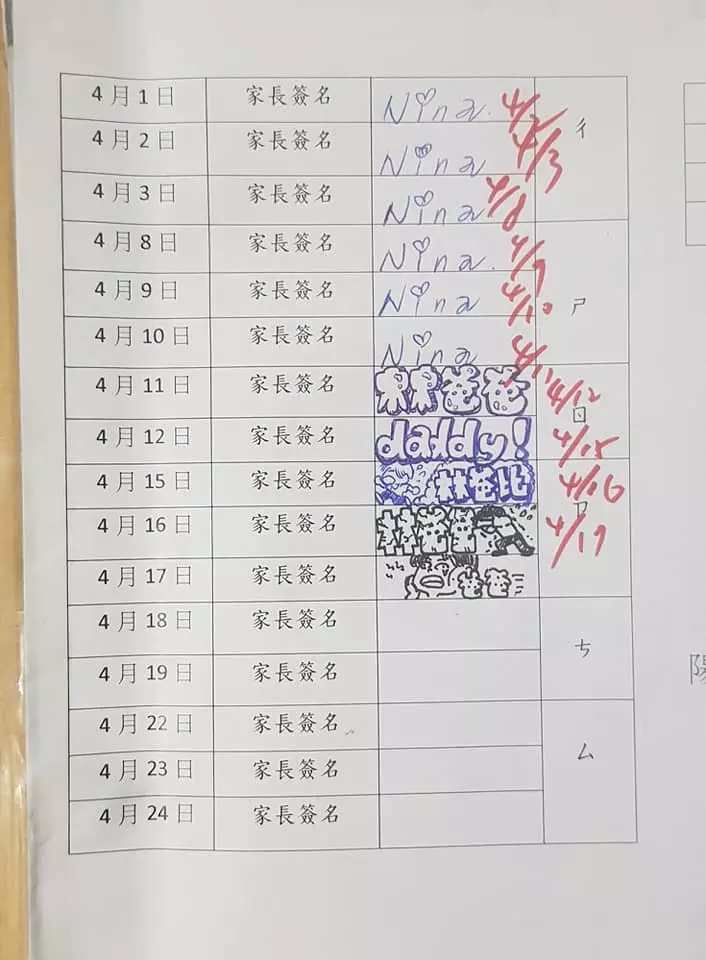 4月1日 家長簽名 Nina. 4/2
4月2日 家長簽名 Nina 4/3 ㄔ
4月3日 家長簽名 Nina 4/8
4月8日 家長簽名 Nina. 4/9
4月9日 家長簽名 Nina 4/10 ㄕ
4月10日 家長簽名 Nina 4/11
4月11日 家長簽名 林爸爸 4/12 ㄖ
4月12日 家長簽名 daddy! 4/15
4月15日 家長簽名 林爸比 4/16 ㄗ
4月16日 家長簽名 林爸爸 4/17
4月17日 家長簽名 爸爸
4月18日 家長簽名 ㄘ
4月19日 家長簽名
4月22日 家長簽名
4月23日 家長簽名 ㄙ
4月24日 家長簽名